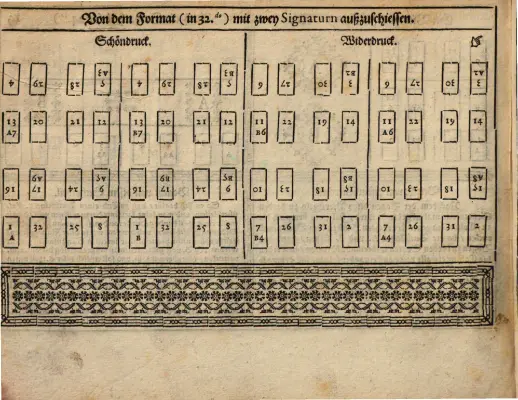 Von dem Format (in 32.do) mit zwey Signaturn außzuschiessen.
Schöndruck. Widerdruck.
A3 B3 B2 A2
4 29 28 5 4 29 28 5 6 27 30 3 6 27 30 3
13 20 21 12 13 20 21 12 11 22 19 14 11 22 19 14
A7 B7 B6 A6
A9 A5 B9 B5 B8 A8
16 17 24 9 16 17 24 9 10 23 18 15 10 23 18 15
1 32 25 8 1 32 25 8 7 26 31 2 7 26 31 2
A B B4 A4